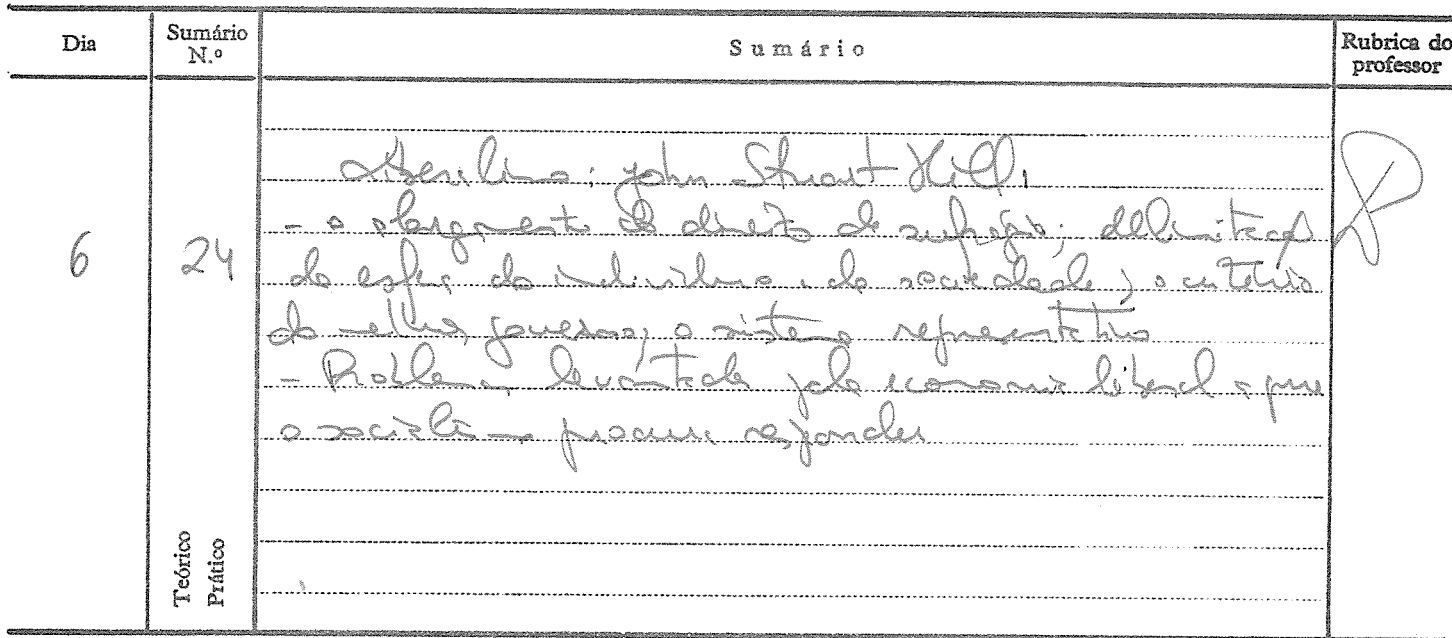 Dia
Sumário N.º
Sumário
Rubrica do professor
6
24
Liberalismo: John Stuart Mill.
- o alargamento do direito de sufrágio; delimitação
da esfera do indivíduo e da sociedade; o critério
do melhor governo; o sistema representativo
- Problemas levantados pela economia liberal a que
o socialismo procura responder
Teórico
Prático